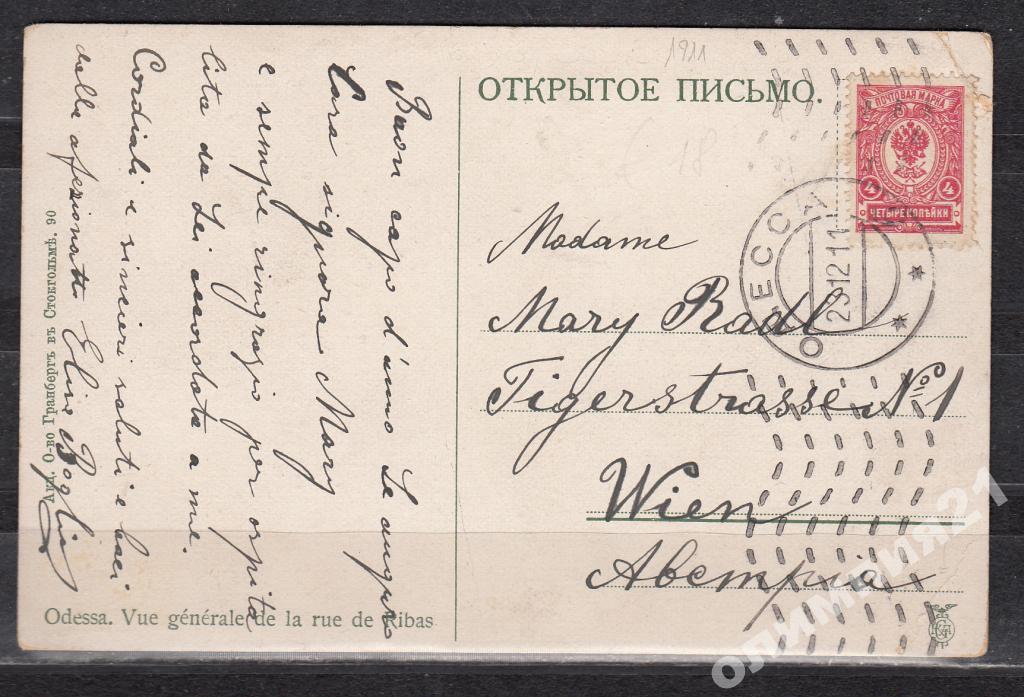 1911
ОТКРЫТОЕ ПИСЬМО.
ПОЧТОВАЯ МАРКА
4 4
ЧЕТЫРЕ КОПѢЙКИ
ОДЕССА
29 12 11
18
Modame
Mary Radl
Tigerstrasse No 1
Wien
Австрія
Buon capo d'anno Le auguro
Cara signora Mary
e sempre ringrazio per ospita
lita da Lei accordata a me.
Cordiali e sinceri saluti e baci
dalla afezionatta Elira
Акц. О-во Гранбергъ въ Стокгольмѣ. 90
Odessa. Vue générale de la rue de Ribas
олимпия21